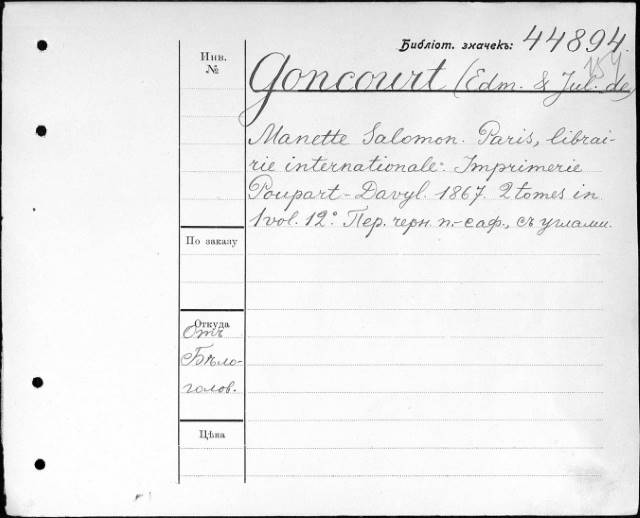 Библіот. значекъ: 44894.
Инв.
№
Goncourt (Edm. & Jul. de)
Manette Salomon. Paris, librai-
rie internationale: Imprimerie
Poupart-Davyl. 1867. 2 tomes in
1 vol. 12° Пер. черн. п.-саф., съ углами.
По заказу
Откуда
Отъ
Бѣло-
голов.
Цѣна